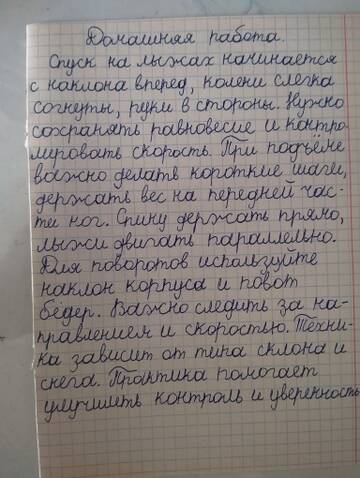 Домашняя работа.
Спуск на лыжах начинается
с наклона вперед, колени слегка
согнуты, руки в стороны. Нужно
сохранять равновесие и контро-
лировать скорость. При подъёме
важно делать короткие шаги,
держать вес на передней час-
ти ног. Спину держать прямо,
лыжи двигать параллельно.
Для поворотов используйте
наклон корпуса и повот
бёдер. Важно следить за на-
правлением и скоростью. Техни-
ка зависит от типа склона и
снега. Практика помогает
улучшить контроль и уверенность